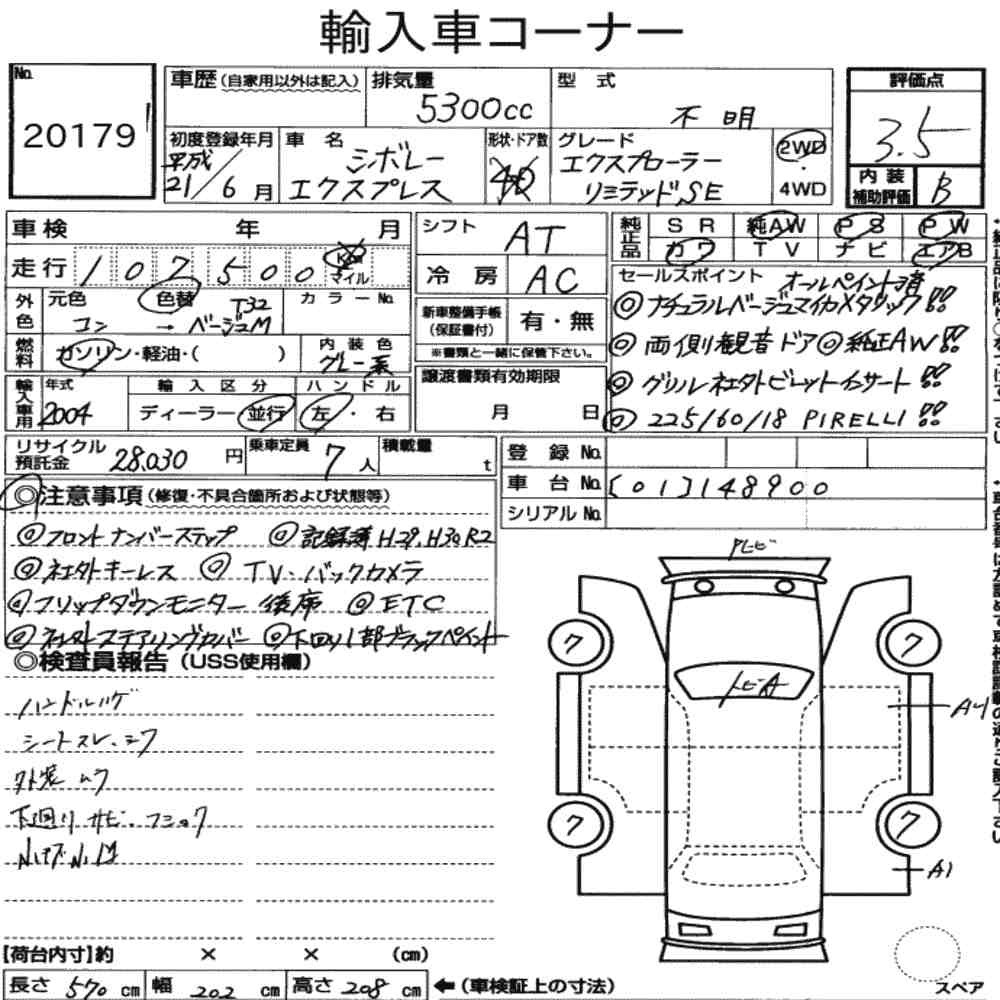 輸入車コーナー
No.
20179
車歴(自家用以外は記入)
排気量
5300cc
型 式
不 明
評価点
3.5
内装補助評価
B
初度登録年月
平成
21/6月
車 名
シボレー
エクスプレス
形状・ドア数
グレード
エクスプローラー
リミテッドSE
2WD
・
4WD
車検 年 月
走行 107500 Km マイル
シフト AT
冷房 AC
純正品 SR 純AW PS PW
カワ TV ナビ エアB
外色 元色 コン → 色替 ベージュM T32 カラーNo.
燃料 ガソリン・軽油・( )
内装色 グレー系
輸入車用 年式 2004
輸入区分 ディーラー・並行
ハンドル 左・右
新車整備手帳(保証書付) 有・無
※書類と一緒に保管下さい。
譲渡書類有効期限
月 日
セールスポイント オールペイント済
◎ナチュラルベージュマイカメタリック!!
◎両側観音ドア◎純正AW!!
◎グリル社外ビレットインサート!!
◎225/60/18 PIRELLI!!
リサイクル預託金 28,030 円
乗車定員 7 人
積載量 t
登録 No.
車台 No. [01]148900
シリアル No.
◎注意事項(修復・不具合箇所および状態等)
◎フロントナンバーステップ ◎記録簿H29,H30,R2
◎社外キーレス ◎TV・バックカメラ
◎フリップダウンモニター 後席 ◎ETC
◎社外ステアリングカバー ◎下回り1部ブラックペイント
◎検査員報告(USS使用欄)
シートスレ・シワ
外装 ムラ
下廻り サビ・フショク
飛ビ
飛ビA
7
7
7
7
A4
A1
【荷台内寸】約 × × (cm)
長さ 570 cm 幅 202 cm 高さ 208 cm ←(車検証上の寸法)
スペア